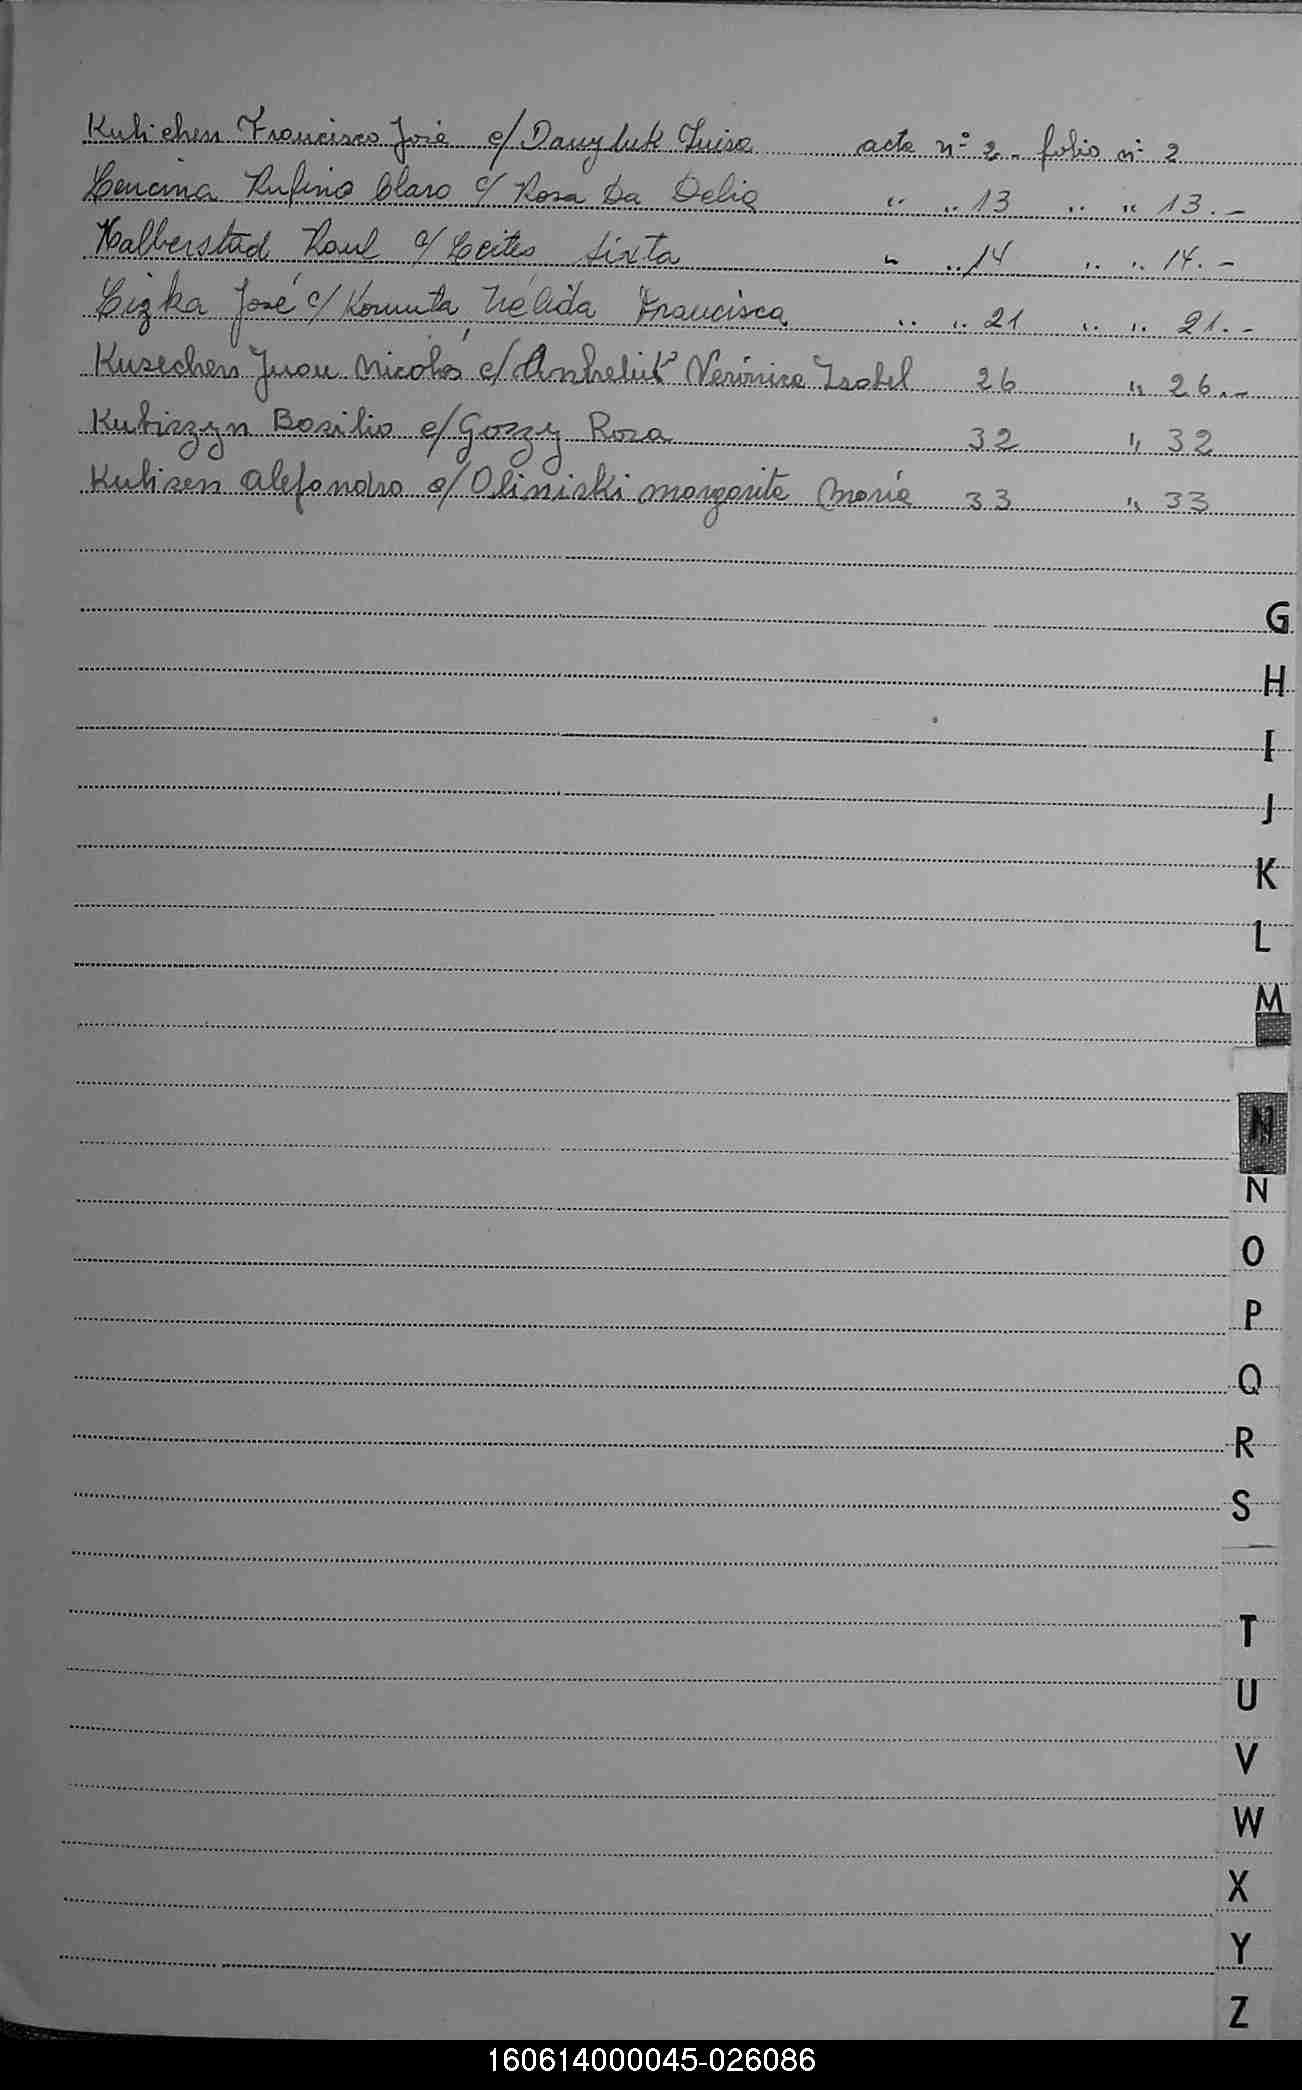 Kubichen Francisco José c/ Danyluk Luisa acta nº 2. folio nº 2
Lencina Rufino Claro c/ Rosa Da Delia " " 13 " " 13.-
Halberstad Raul c/ Leites Sixta " " 14 " " 14.-
Lizka José c/ Kornuta Nélida Francisca " " 21 " " 21.-
Kusechen Juan Nicolás c/ Verónica Isabel 26 " 26.-
Kubiszyn Basilio c/ Gozzy Rosa 32 " 32
Kubisen Alejandro c/ Oliniski Margarita María 33 " 33
G
H
I
J
K
L
M
N
N
O
P
Q
R
S
T
U
V
W
X
Y
Z
160614000045-026086